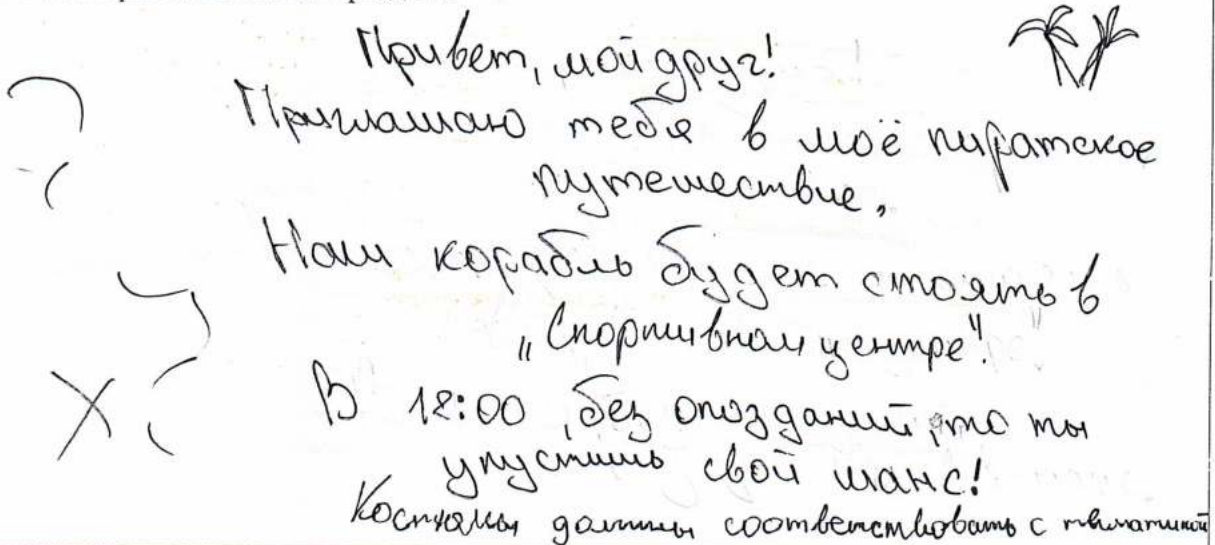 Привет, мой друг!
Приглашаю тебя в моё пиратское
путешествие,
Наш корабль будет стоять в
„Спортивном центре".
В 12:00, без опозданий, то ты
упустишь свой шанс!
Костюмы должны соответствовать с тематикой